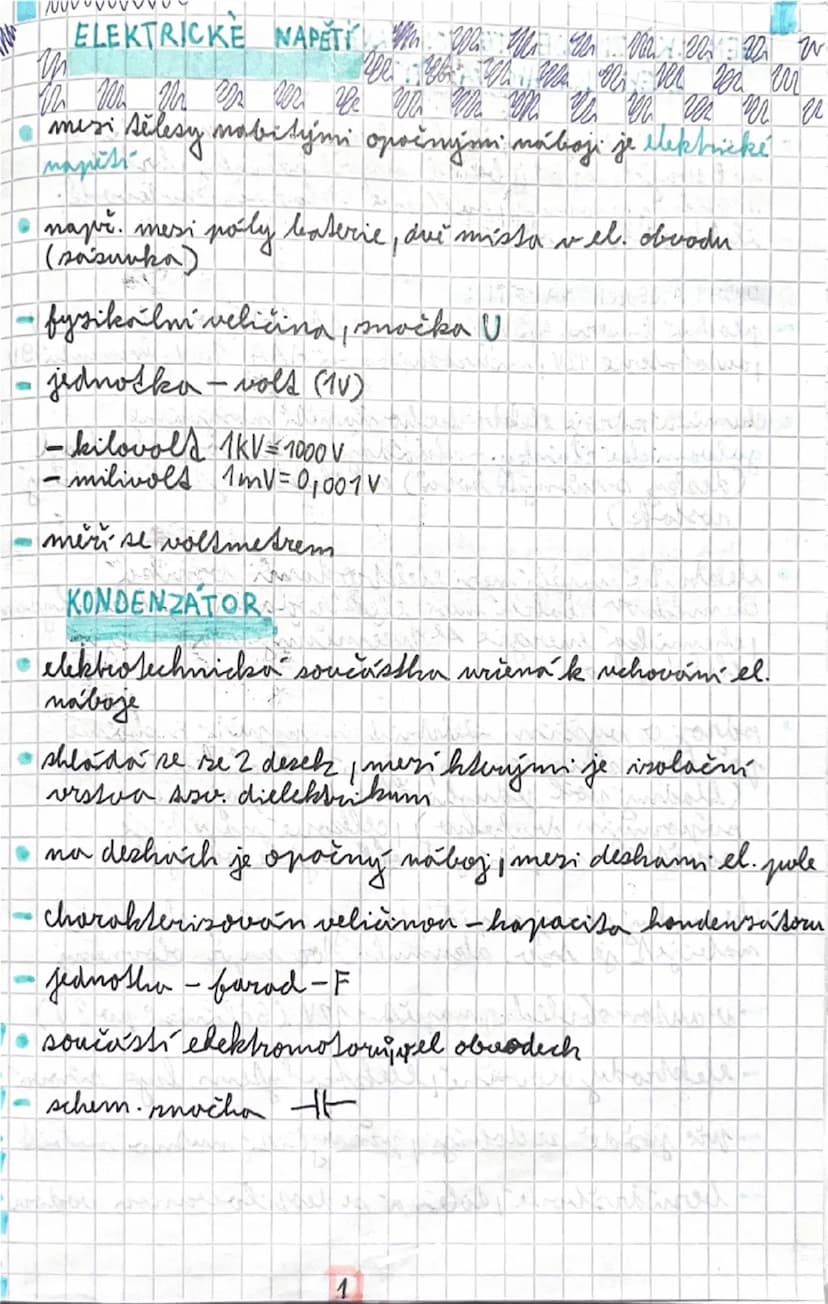 ELEKTRICKÈ NAPĚTÍ
• mezi tělesy nabitými opačnými náboji je elektrické
napětí
• např. mezi póly baterie, dvě místa v el. obvodu
(zásuvka)
- fyzikální veličina, značka U
- jednotka - volt (1V)
- kilovolt 1KV = 1000 V
- milivolt 1mV = 0,001 V
- měří se voltmetrem
KONDENZÁTOR
• elektrotechnická součástka určená k uchování el.
náboje
• skládá se ze 2 desek, mezi kterými je izolační
vrstva tzv. dielektrikum
• na deskách je opačný náboj, mezi deskami el. pole
- charakterizován veličinou - kapacita kondenzátoru
- jednotka - farad - F
• součástí elektromotorů, v el obvodech
- schem. značka
1